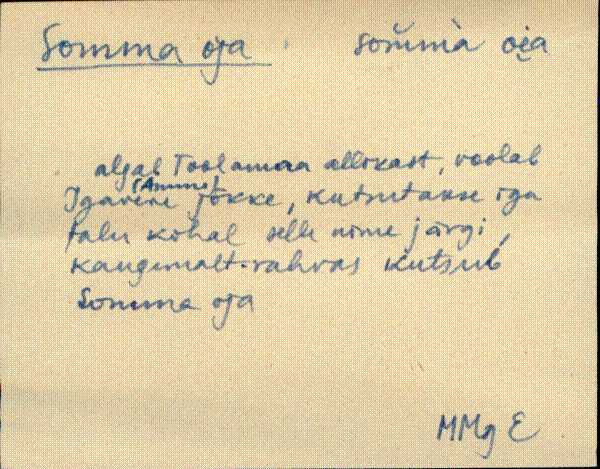 Somma oja som̆mà oi̯a
algab Toolamaa allikast, voolab
(Ammo)
Igavene jõkke, kutsutakse iga
talu kohal selle nime järgi,
kaugemalt rahvas kutsub
Somma oja
MMg E